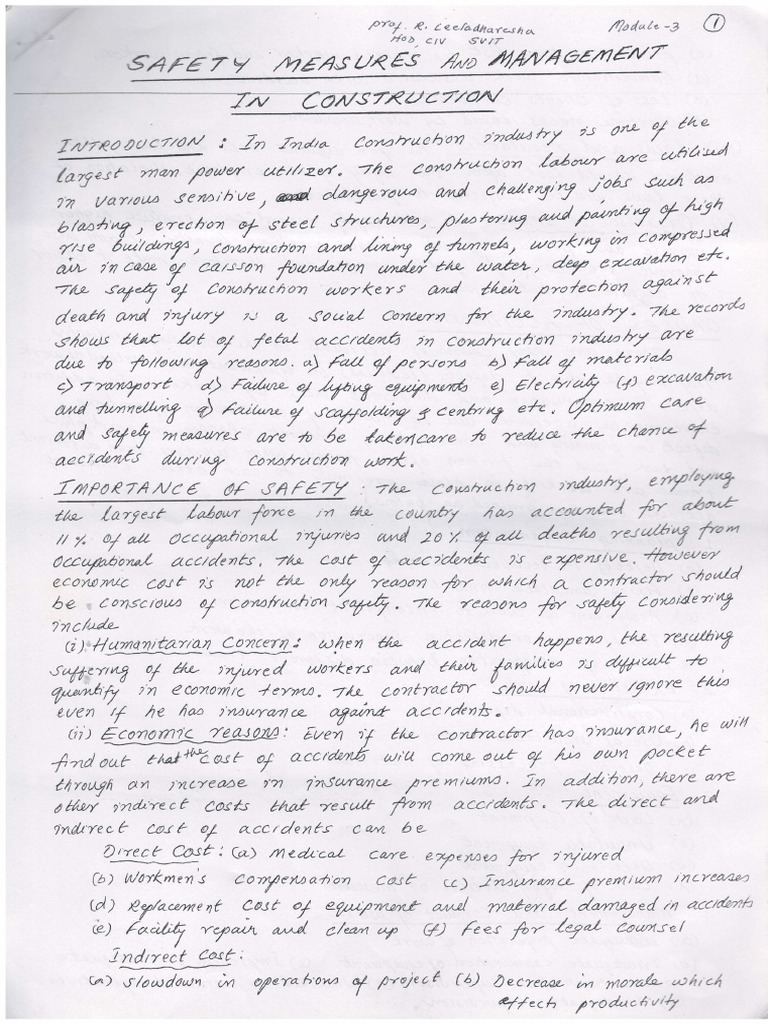 Prof. R. Leeladharesha Module-3 1
HOD, CIV SVIT
SAFETY MEASURES AND MANAGEMENT
IN CONSTRUCTION
INTRODUCTION : In India construction industry is one of the
largest man power utilizer. The construction labour are utilised
in various sensitive, dangerous and challenging jobs such as
blasting, erection of steel structures, plastering and painting of high
rise buildings, construction and lining of tunnels, working in compressed
air in case of caisson foundation under the water, deep excavation etc.
The safety of construction workers and their protection against
death and injury is a social concern for the industry. The records
shows that lot of fetal accidents in construction industry are
due to following reasons. a) Fall of persons b) Fall of materials
c) Transport d) Failure of lifting equipments e) Electricity (f) excavation
and tunnelling g) Failure of scaffolding & centring etc. Optimum care
and safety measures are to be takencare to reduce the chance of
accidents during construction work.
IMPORTANCE OF SAFETY : The construction industry, employing
the largest labour force in the country has accounted for about
11% of all occupational injuries and 20% of all deaths resulting from
occupational accidents. The cost of accidents is expensive. However
economic cost is not the only reason for which a contractor should
be conscious of construction safety. The reasons for safety considering
include
(i) Humanitarian Concern: when the accident happens, the resulting
suffering of the injured workers and their families is difficult to
quantify in economic terms. The contractor should never ignore this
even if he has insurance against accidents.
(ii) Economic reasons: Even if the contractor has insurance, he will
find out that the cost of accidents will come out of his own pocket
through an increase in insurance premiums. In addition, there are
other indirect costs that result from accidents. The direct and
indirect cost of accidents can be
Direct Cost: (a) Medical care expenses for injured
(b) Workmen's compensation cost (c) Insurance premium increases
(d) Replacement cost of equipment and material damaged in accidents
(e) Facility repair and clean up (f) Fees for legal counsel
Indirect Cost:
(a) Slowdown in operations of project (b) Decrease in morale which
effects productivity